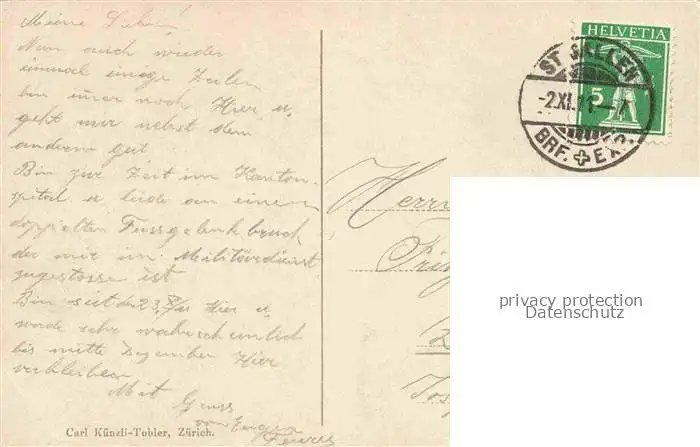 Meine Lieben!
Nun auch wieder
einmal einige Zeilen
bin imer noch Hier u,
geht mir nebst dem
andern gut
Bin zur Zeit im Kanton-
spital u leide an einem
doppelten Fussgelenk bruch
der mir im Militärdienst
zugestossen ist
Bin seit den 23, X/11 Hier u,
werde sehr wahrscheinlich
bis mitte Dezember Hier
verbleiben
Mit Gruss
von Eugen
Carl Künzli-Tobler, Zürich.
HELVETIA
5
ST. GALLEN
-2.XI.11.-7
BRF. EXP.
Herrn
privacy protection
Datenschutz